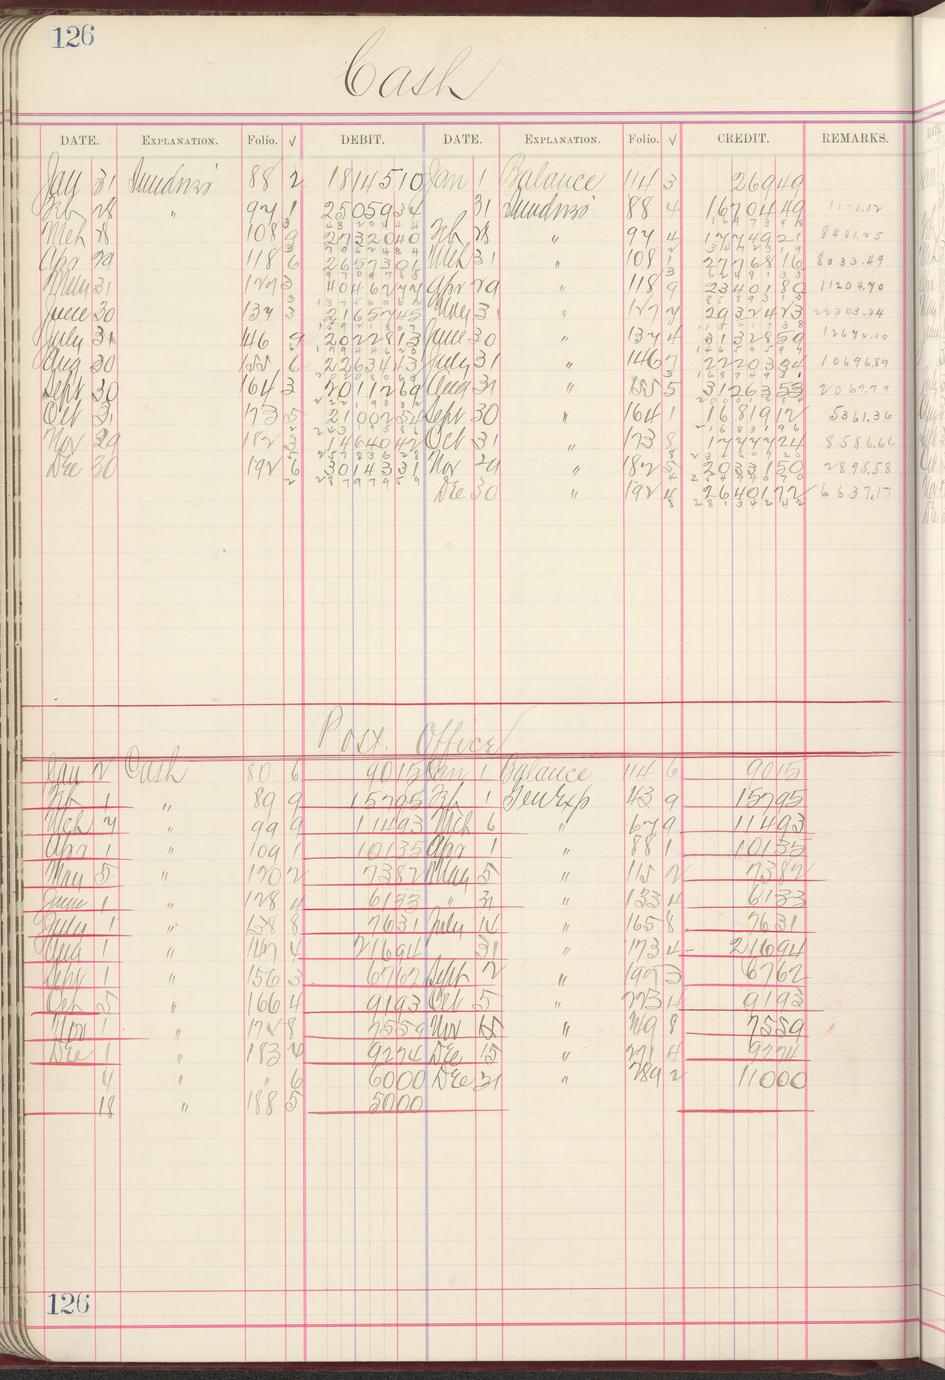 126
Cash
DATE. EXPLANATION. Folio. √ DEBIT. DATE. EXPLANATION. Folio. √ CREDIT. REMARKS.
Jan 31 Sundries 88 2 1814510 Jan 1 Balance 114 3 26949
Feb 28 " 97 1 2505934 31 Sundries 88 4 1670449 1171.12
Mch 31 108 9 2732040 Feb 28 " 97 4 1774921 8481.25
Apr 29 118 6 2657301 Mch 31 " 108 1 2776816 8033.49
May 31 127 3 4046277 Apr 29 " 118 9 2340180 11204.70
June 30 137 3 2165745 May 31 " 127 7 2932423 22343.24
July 31 146 9 2022813 June 30 " 137 4 3132859 12672.10
Aug 30 155 6 2263443 July 31 " 146 7 2220334 10696.89
Sept 30 164 3 2011269 Aug 31 " 155 5 3126353 2067.79
Oct 31 173 5 2100254 Sept 30 " 164 1 1681912 5361.36
Nov 29 182 3 1464042 Oct 31 " 173 8 1777724 8586.66
Dec 30 192 6 3014331 Nov 29 " 182 5 2033150 2895.58
Dec 30 " 192 4 2640172 6637.17
Post Office
Jan 2 Cash 80 6 9015 Jan 1 Balance 114 6 9015
Feb 1 " 89 9 15795 Feb 1 Gen Exp 43 9 15795
Mch 7 " 99 9 11493 Mch 6 " 67 9 11493
Apr 1 " 109 1 10135 Apr 1 " 88 1 10135
May 5 " 120 2 7382 May 5 " 115 2 7382
June 1 " 128 4 6133 " 31 " 133 4 6133
July 1 " 138 8 7631 July 14 " 165 8 7631
Aug 1 " 147 4 21694 31 " 173 4 21694
Sept 1 " 156 3 6762 Sept 2 " 197 3 6762
Oct 5 " 166 4 9193 Oct 5 " 223 4 9193
Nov 1 " 174 8 7559 Nov 15 " 249 8 7559
Dec 1 " 183 4 9274 Dec 15 " 271 4 9274
4 " " 6 6000 Dec 31 " 289 2 11000
18 " 188 5 5000
126